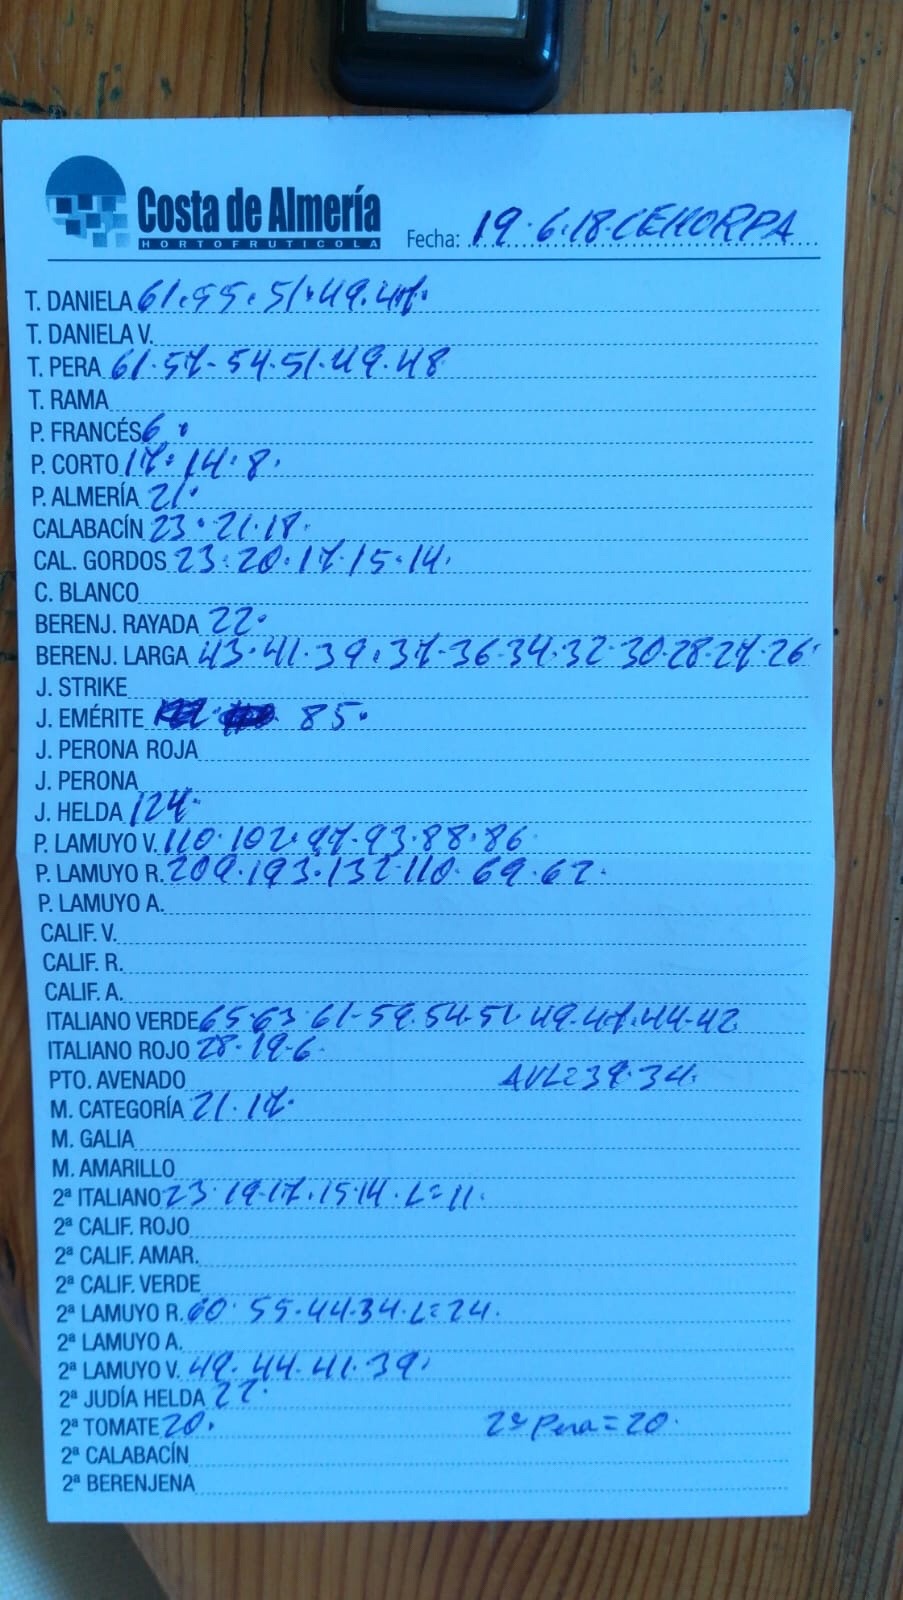 Costa de Almería
HORTOFRUTICOLA
Fecha: 19.6.18.CEHORPA
T. DANIELA 61.55.51.49.47.
T. DANIELA V.
T. PERA 61.57-54.51.49.48
T. RAMA
P. FRANCÉS 6.
P. CORTO 17.14.8.
P. ALMERÍA 21.
CALABACÍN 23.21.18.
CAL. GORDOS 23.20.17.15.14.
C. BLANCO
BERENJ. RAYADA 22.
BERENJ. LARGA 43.41.39.37-36-34.32.30.28.27.26.
J. STRIKE
J. EMÉRITE 85.
J. PERONA ROJA
J. PERONA
J. HELDA 124.
P. LAMUYO V. 110.102.97-93.88.86.
P. LAMUYO R. 209.193.132.110.69.62.
P. LAMUYO A.
CALIF. V.
CALIF. R.
CALIF. A.
ITALIANO VERDE 65.63 61-59.54-51.49.47.44-42
ITALIANO ROJO 28.19.6.
PTO. AVENADO AVL=39.34.
M. CATEGORÍA 21.17.
M. GALIA
M. AMARILLO
2ª ITALIANO 23.19.17.15.14.L=11.
2ª CALIF. ROJO
2ª CALIF. AMAR.
2ª CALIF. VERDE
2ª LAMUYO R. 60.55-44-34.L=24.
2ª LAMUYO A.
2ª LAMUYO V. 49.44.41.39.
2ª JUDÍA HELDA 22.
2ª TOMATE 20. 2ª Pera=20.
2ª CALABACÍN
2ª BERENJENA